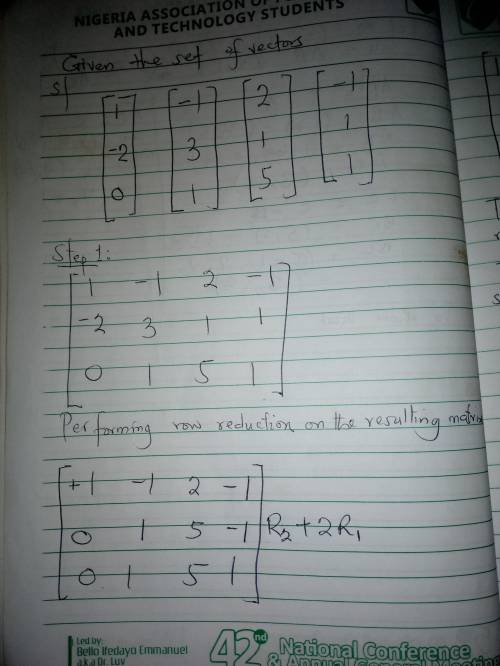 NIGERIA ASSOCIATION OF
AND TECHNOLOGY STUDENTS
Given the set of vectors
S
[1 -2 0] [-1 3 1] [2 1 5] [-1 1 1]
Step 1:
1 -1 2 -1
-2 3 1 1
0 1 5 1
Performing row reduction on the resulting matrix
+1 -1 2 -1
0 1 5 -1 R2+2R1
0 1 5 1
Led by:
Bello Ifedayo Emmanuel
a.k.a Dr. Luv
42nd National Conference